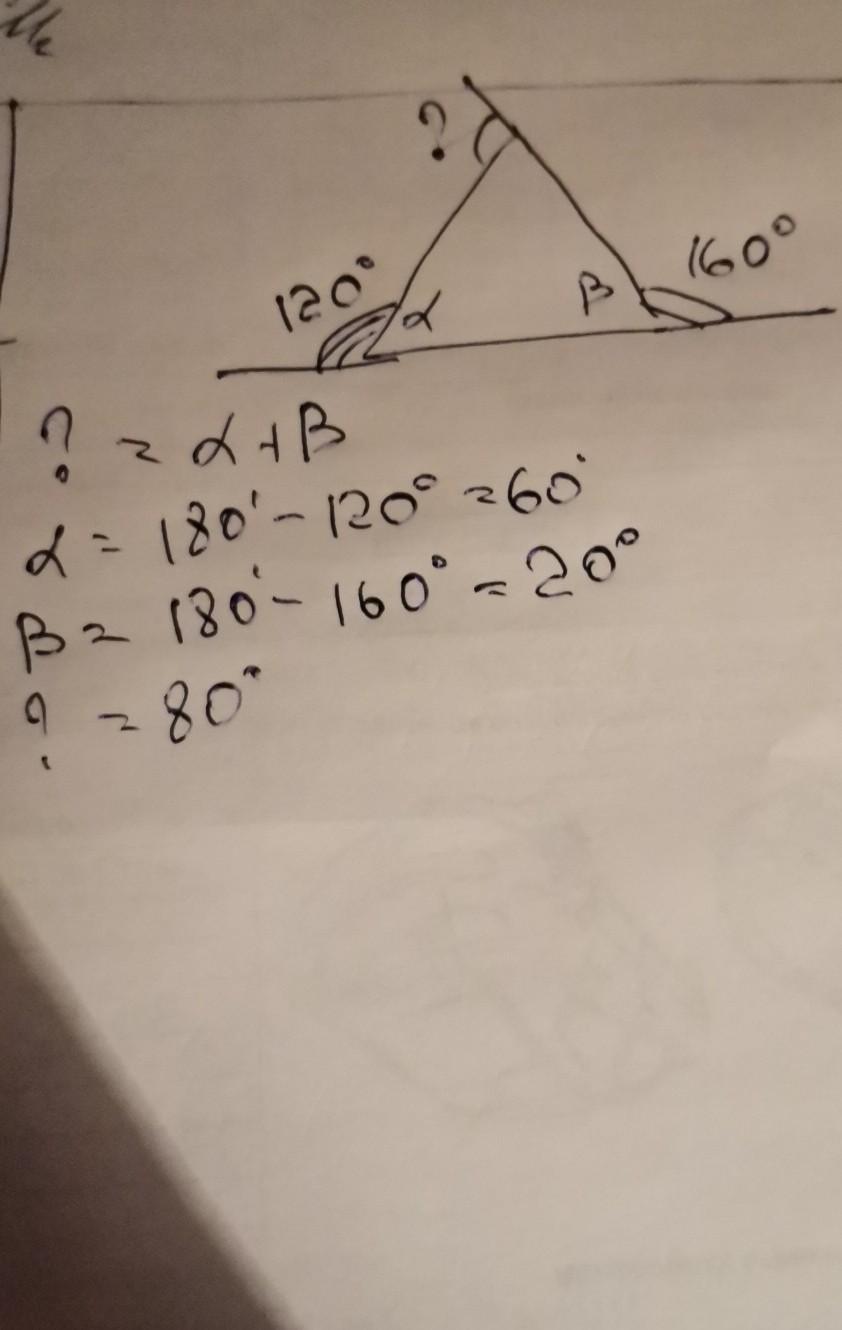 ?
120°
α
β
160°
? = α + β
α = 180° - 120° = 60°
β = 180° - 160° = 20°
? = 80°